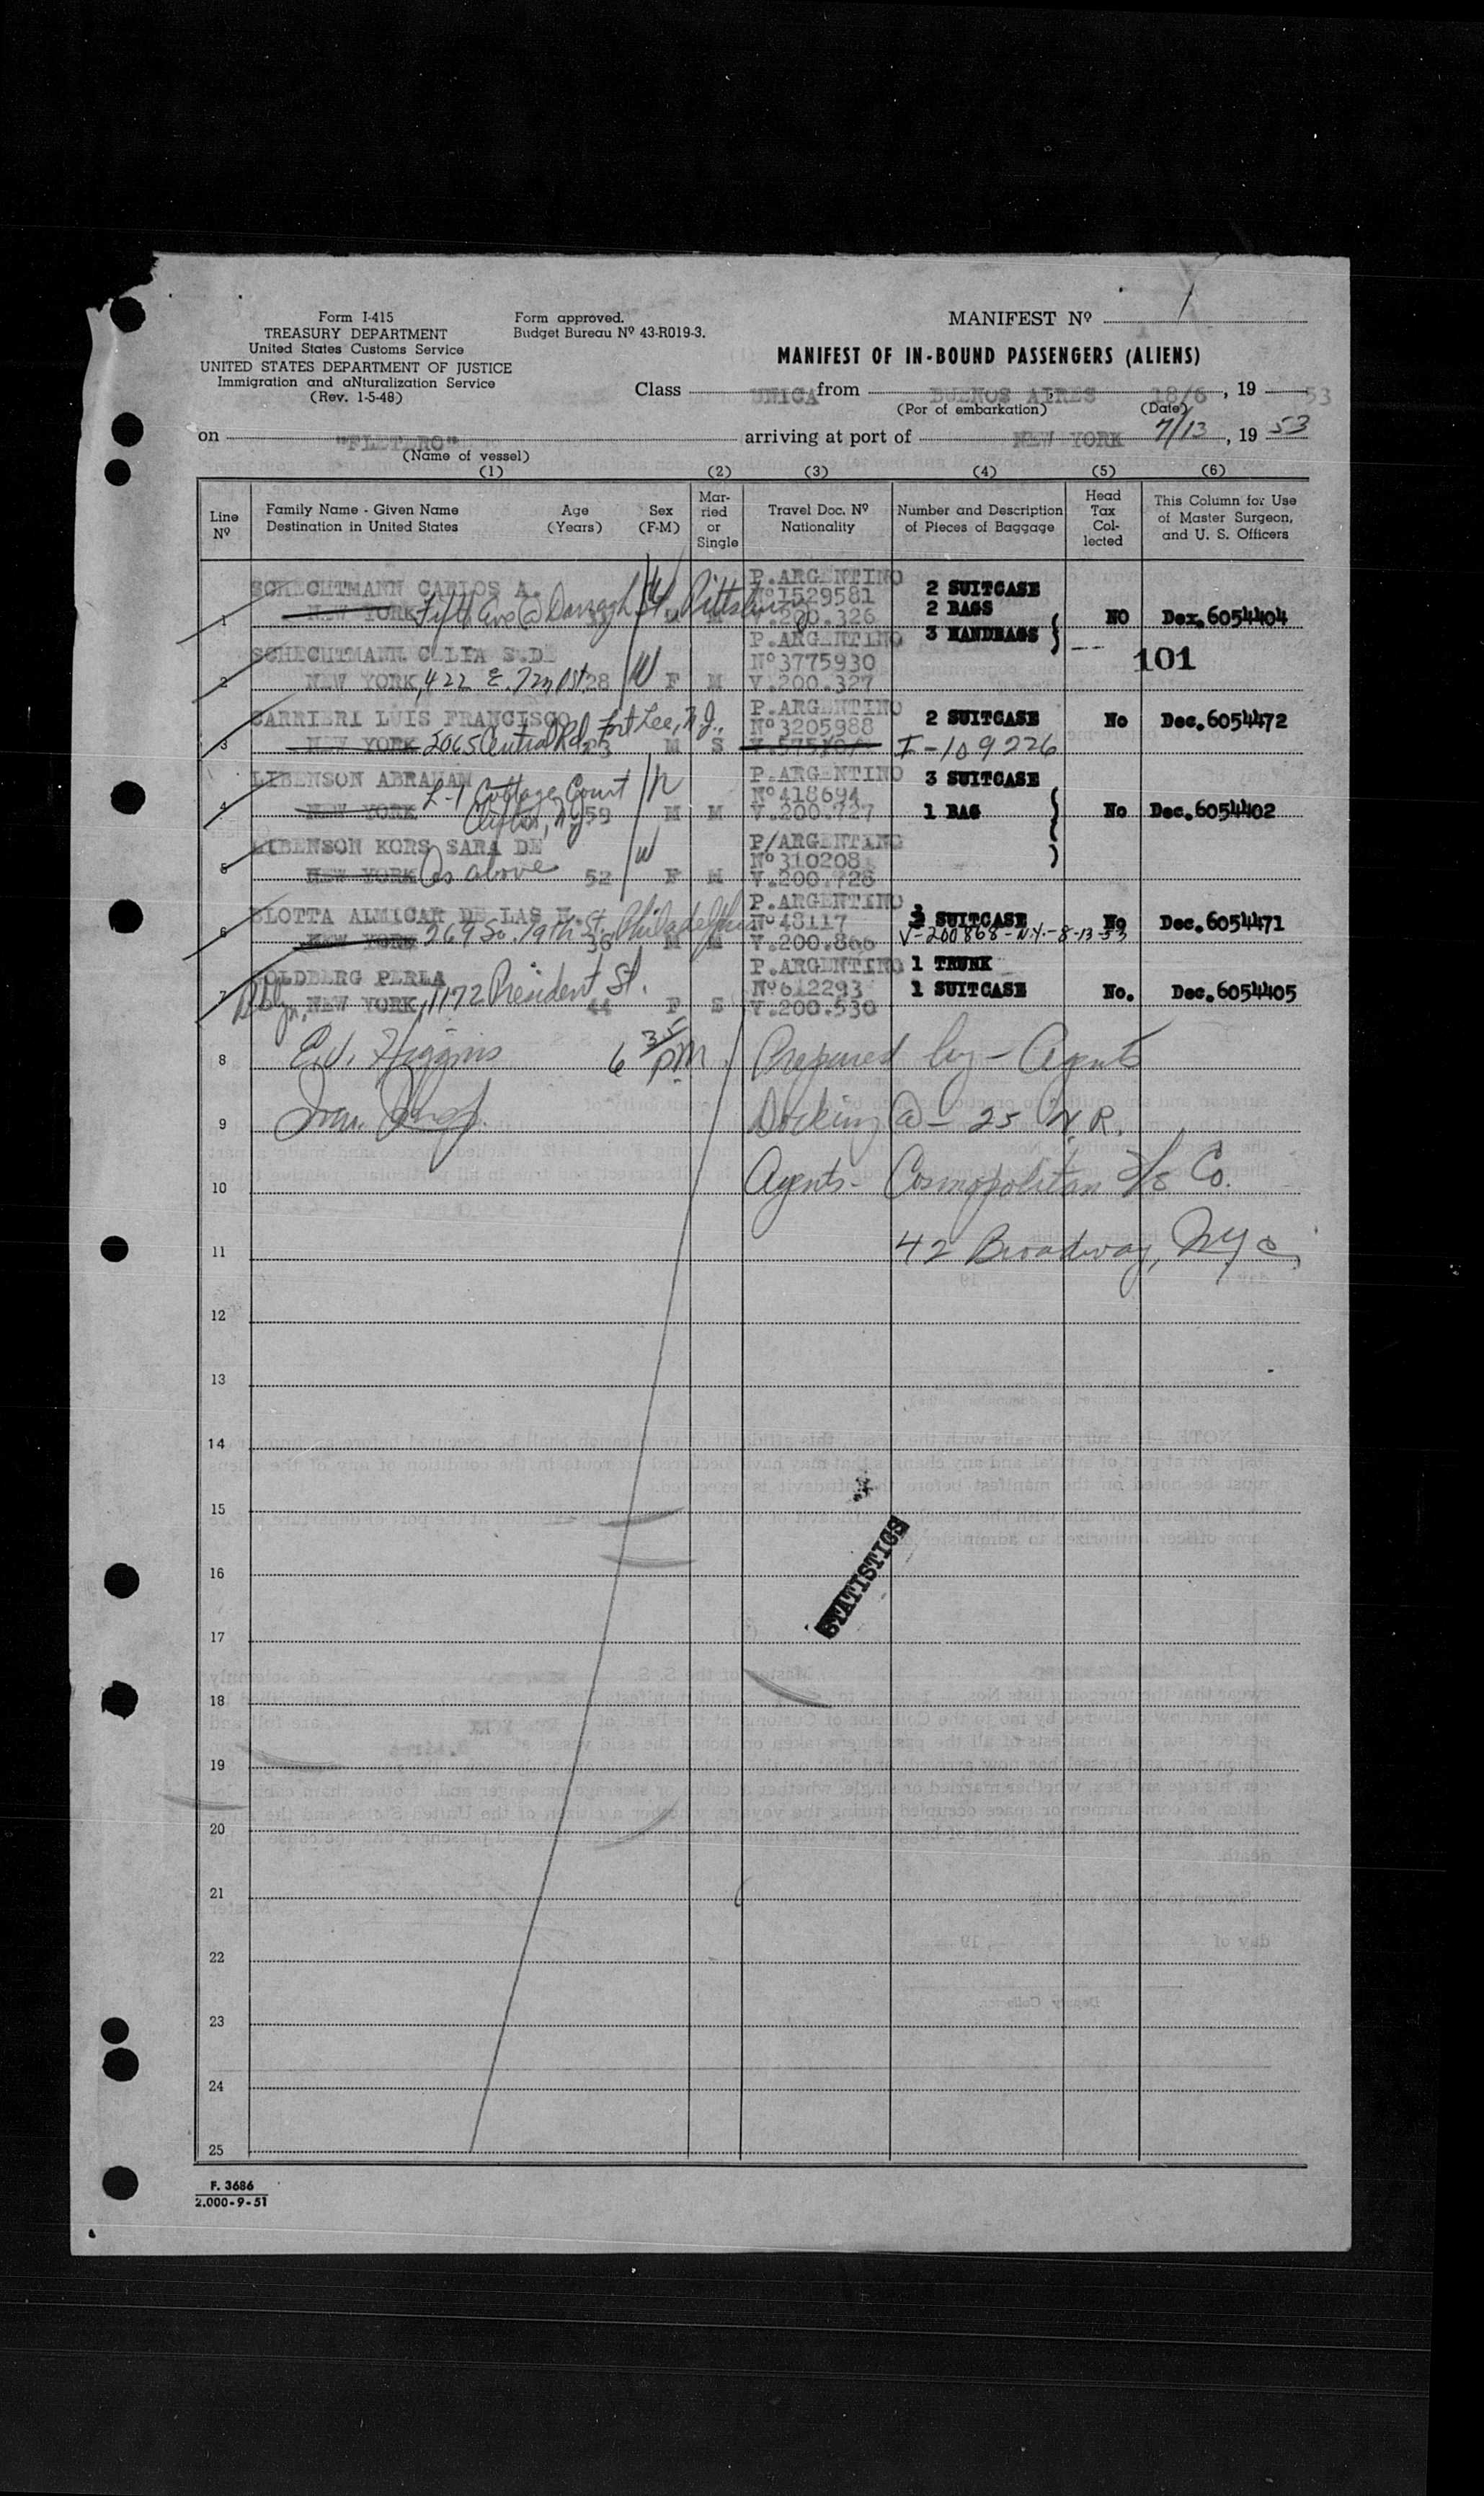 Form I-415
TREASURY DEPARTMENT
United States Customs Service
UNITED STATES DEPARTMENT OF JUSTICE
Immigration and aNturalization Service
(Rev. 1-5-48)
Form approved.
Budget Bureau Nº 43-R019-3.
MANIFEST Nº 1
MANIFEST OF IN-BOUND PASSENGERS (ALIENS)
Class UNICA from BUENOS AIRES 18/6, 19 53
(Por of embarkation) (Date)
on "FLETERO" arriving at port of NEW YORK 7/13, 19 53
(Name of vessel)
(1) (2) (3) (4) (5) (6)
Line Nº
Family Name - Given Name
Destination in United States
Age
(Years)
Sex
(F-M)
Mar-
ried
or
Single
Travel Doc. Nº
Nationality
Number and Description
of Pieces of Baggage
Head
Tax
Col-
lected
This Column for Use
of Master Surgeon,
and U. S. Officers
SCHECHTMANN CARLOS A. P.ARGENTINO 2 SUITCASE
Nº1529581 2 BAGS
1 NEW YORK Fifth Ave @ Darragh St Pittsburg 33 M M V.200.326 NO Dex.6054404
SCHECHTMANN CELIA S.DE P.ARGENTINO 3 HANDBAGS
Nº3775930 101
2 NEW YORK, 422 E. 72nd St. 28 W F M V.200.327
CARRIERI LUIS FRANCISCO Fort Lee, N.J., P.ARGENTINO
Nº3205988 2 SUITCASE No Dec.6054472
3 NEW YORK 2065 Central Rd. 23 M S I-109226
LIBENSON ABRAHAM P.ARGENTINO 3 SUITCASE
L-1 Cottage Court Nº418694
4 NEW YORK Clifton, NJ 59 M M V.200.727 1 BAG No Dec.6054402
LIBENSON KORS SARA DE P/ARGENTINO
Nº310208
5 NEW YORK As above 52 W F M V.200.726
BLOTTA ALMICAR DE LAS N. P.ARGENTINO
Nº48117 3 SUITCASE No Dec.6054471
6 NEW YORK 269 So. 19th St. Philadelphia 36 M M V.200.866 V-200868-N.Y.-8-13-53
GOLDBERG PERLA P.ARGENTINO 1 TRUNK
Nº612293 1 SUITCASE No. Dec.6054405
7 Bklyn, NEW YORK, 1172 President St. 44 F S V.200.530
8 E.J. Higgins 6 35 PM. Prepared by - Agents
9 Docking @ - 25 N.R.
10 Agents - Cosmopolitan S/S Co.
11 42 Broadway, NYC
12
13
14
15
16
STATISTICS
17
18
19
20
21
22
23
24
25
F. 3686
2.000-9-51